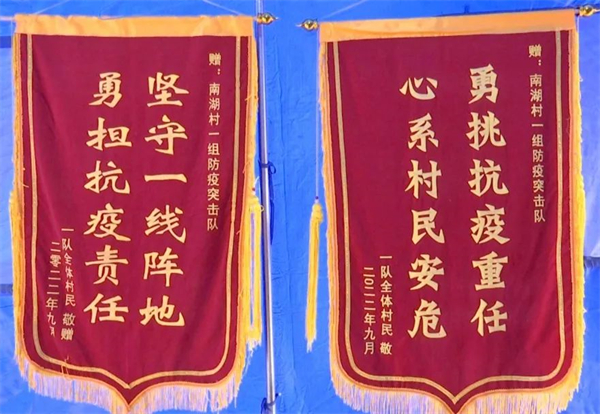 赠：南湖村一组防疫突击队
坚守一线阵地
勇担抗疫责任
一队全体村民 敬赠
二零二二年九月
赠：南湖村一组防疫突击队
勇挑抗疫重任
心系村民安危
一队全体村民 敬
二〇二二年九月